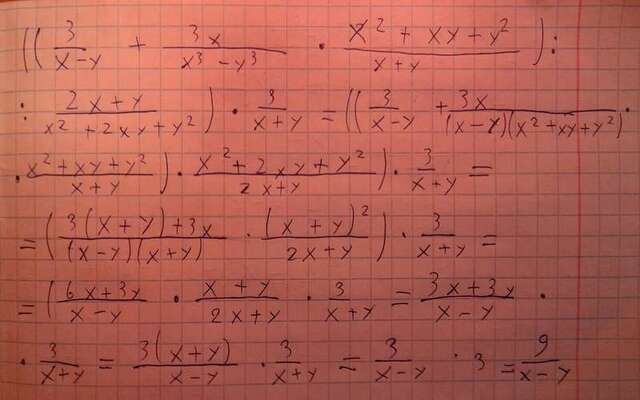 ((3/(x-y) + 3x/(x³-y³) · (x²+xy+y²)/(x+y)) :
: (2x+y)/(x²+2xy+y²)) · 3/(x+y) = ((3/(x-y) + 3x/((x-y)(x²+xy+y²)) ·
· (x²+xy+y²)/(x+y)) · (x²+2xy+y²)/(2x+y)) · 3/(x+y) =
= ((3(x+y)+3x)/((x-y)(x+y)) · (x+y)²/(2x+y)) · 3/(x+y) =
= ((6x+3y)/(x-y) · (x+y)/(2x+y) · 3/(x+y) = (3x+3y)/(x-y) ·
· 3/(x+y) = 3(x+y)/(x-y) · 3/(x+y) = 3/(x-y) · 3 = 9/(x-y)